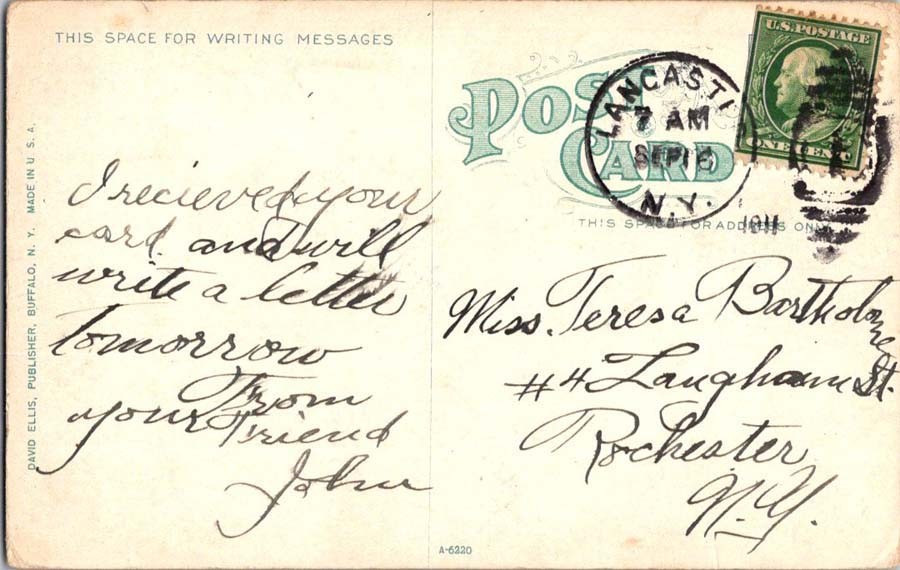 THIS SPACE FOR WRITING MESSAGES
DAVID ELLIS, PUBLISHER, BUFFALO, N. Y. MADE IN U. S. A.
I recieved your
card and will
write a letter
tomorrow
From
your Friend
John
POST
CARD
THIS SPACE FOR ADDRESS ONLY
7 AM
SEP 16
N.Y.
1911
U.S. POSTAGE
ONE CENT
Miss. Teresa Bartholome
#4 Langham St.
Rochester
N.Y.
A-6220